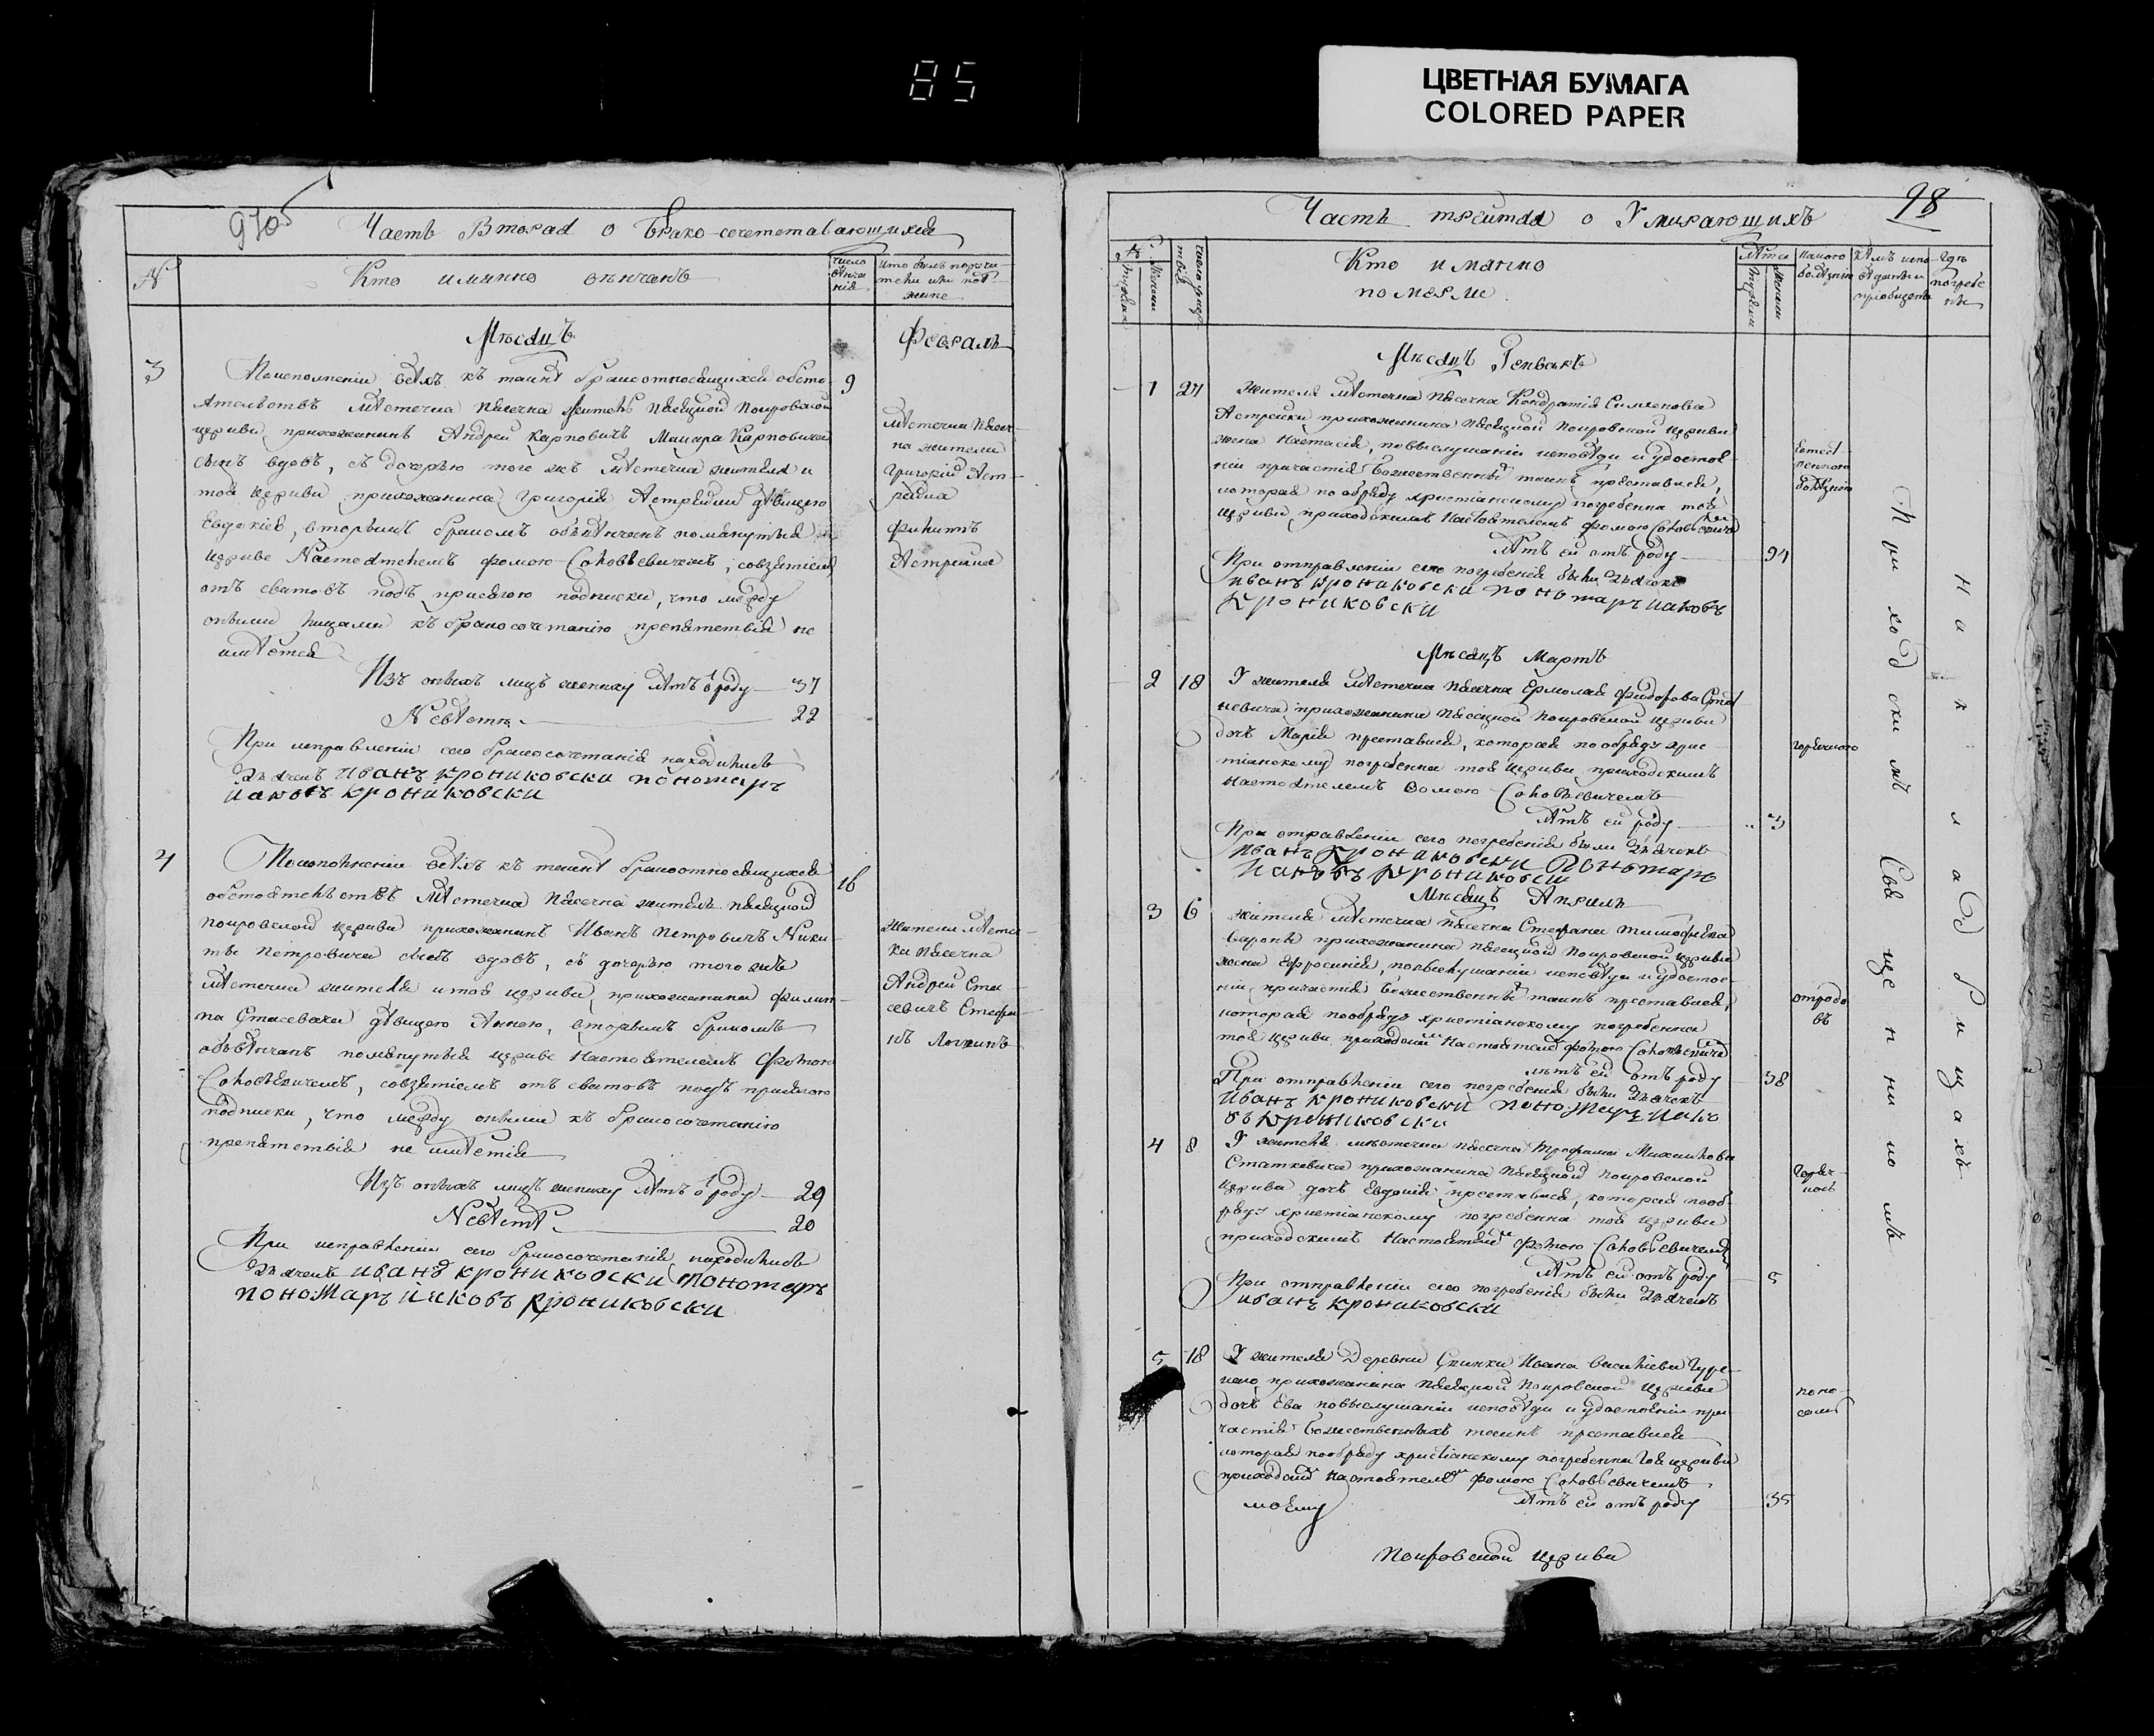 85
ЦВЕТНАЯ БУМАГА
COLORED PAPER
970
Часть Вторая о Брако-сочетотавающихся
№
Кто имянно венчанъ
число венча нія
кто былъ поручи-
тели или под-
жине
Месяцъ
Февраль
3
Поисполненіи всехъ къ таинѣ бракоотносящихся обсто
9
ятельствъ мѣстечка Пѣсочна житель Пѣсоцкой Покровской
церкви прихожанинъ Андрей Карповичъ Макара Карповича
сынъ вдовъ, съ дочерью того жъ мѣстечка жителя и
той церкви прихожанина Григорія Астрейки дѣвицею
Евдокіею, вторымъ бракомъ обвѣнчанъ помянутыя
церкве Настоятелемъ Фомою Соловьевичемъ, совзятіемъ
отъ сватовъ подъ присягою подписки, что между
оными лицами къ бракосочетанію препятствія не
имѣется
мѣстечка Пѣсоч-
на жители
Григорій Аст-
рейка
Филипъ
Астрейка
Изъ оныхъ лицъ жениху лѣтъ о роду 37
Невѣстѣ 22
При исправленіи сего бракосочетанія находились
Дьячекъ Иванъ Крониковски пономаръ
Иаковъ Крониковски
4
Поисполненіи всѣхъ къ таинѣ бракоотносящихся
16
обстоятельствъ мѣстечка Пѣсочна житель Пѣсоцкой
Покровской церкви прихожанинъ Иванъ Петровичъ Ники-
ты Петровича сынъ вдовъ, съ дочерью того жъ
мѣстечка жителя и той церкви прихожанина Филип-
па Стасевича дѣвицею Анною, вторымъ бракомъ
обвѣнчанъ помянутыя церкве Настоятелемъ Фомою
Соловьевичемъ, совзятіемъ отъ сватовъ подъ присягою
подписки, что между оными къ бракосочетанію
препятствія не имѣетія
жители мѣстеч-
ка Пѣсочна
Андрей Ста-
севичъ Стефа-
нъ
Изъ оныхъ лицъ жениху лѣтъ о роду 29
Невѣстѣ 20
При исправленіи сего бракосочетанія находились
Дьячекъ Иванъ Крониковски Пономаръ
пономаръ Иаковъ Крониковски
98
Часть третая о Умирающихъ
№
мужеска
Женска
число
Кто имянно
померли
Лѣта
мужеска
женска
Какою болѣзнію
Кѣмъ испо вѣданы и пріобщены
Гдѣ погребе ны
Месяцъ Генварь
1 27 Жителя мѣстечка Пѣсочна Кондратія Сименова
Астрейки прихожанина Пѣсоцкой Покровской церкви
жена Настасія, повыслушаніи исповѣди и удостое
ніи причастія Божественныхъ таинъ преставися,
которая по обряду христіанскому погребенна той
церкви приходскимъ Настоятелемъ Фомою Соловьевичемъ
Естест
венною
болѣзнію
Лѣтъ ей отъ роду 94
При отправленіи сего погребенія были Дьячекъ
Иванъ Крониковски пономаръ Иаковъ
Крониковски
Месяцъ Мартъ
2 18 У жителя мѣстечка Пѣсочна Ермолая Фидорова
прихожанина Пѣсоцкой Покровской церкви
дочь Марія преставися, которая по обряду хрис-
тіанскому погребенна той церкви приходскимъ
Настоятелемъ Фомою Соловьевичемъ
горячкою
Лѣтъ ей роду 3
При отравленіи сего погребенія были Дьячекъ
Иванъ Крониковски Пономаръ
Иаковъ Крониковски
Месяцъ Апрель
3 6 жителя мѣстечка Пѣсочна Стефана Тимофѣева
прихожанина Пѣсоцкой Покровской церкви
жена Ефросинія, повыслушаніи исповѣди и удостое-
ніи причастія Божественныхъ таинъ преставися,
которая пообряду христіанскому погребенна
той церкви приходскимъ Настоятелемъ Фомою Соловьевичемъ
отродо
въ
лѣтъ ей отъ роду 38
При отправленіи сего погребенія были Дьячекъ
Иванъ Крониковски пономаръ Иако
въ Крониковски
4 8 У жителя мѣстечка Пѣсочна Трофима Михайлова
Статкевича прихожанина Пѣсоцкой Покровской
церкви дочь Евдокія преставися, которая пооб-
ряду христіанскому погребенна той церкви
приходскимъ Настоятелемъ Фомою Соловьевичемъ
горяч-
кою
Лѣтъ ей отъ роду 5
При отправленіи сего погребенія были Дьячекъ
Иванъ Крониковски
5 18 У жителя Деревни Ивана Василіева
прихожанина Пѣсоцкой Покровской церкви
дочь Ева повыслушаніи исповѣди и удостоеніи при
частія Божественныхъ таинъ преставися
которая пообряду христіанскому погребенна той церкви
приходскимъ Настоятелемъ Фомою Соловьевичемъ
поно-
сомъ
Лѣтъ ей отъ роду 35
Приходскимъ Священникомъ
На кладбищахъ
Покровской церкви